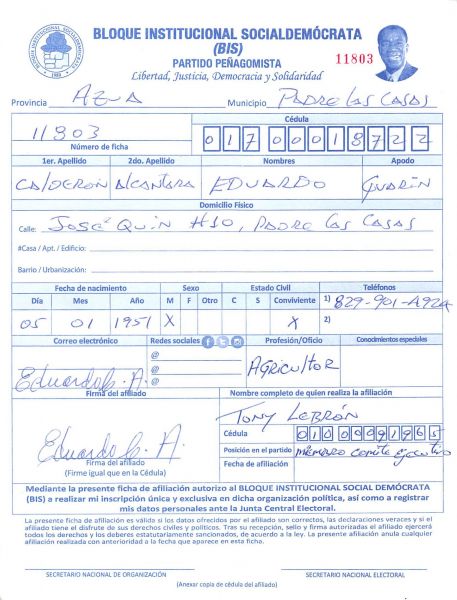 BLOQUE INSTITUCIONAL SOCIALDEMÓCRATA
(BIS)
PARTIDO PEÑAGOMISTA
Libertad, Justicia, Democracia y Solidaridad
11803
Provincia AZUA Municipio PADRE LAS CASAS
11803
Número de ficha
Cédula
01700018722
1er. Apellido 2do. Apellido Nombres Apodo
CALDERON Alcantara EDUARDO GUARIN
Domicilio Físico
Calle: José Quin #10, PADRE LAS CASAS
#Casa / Apt. / Edificio:
Barrio / Urbanización:
Fecha de nacimiento Sexo Estado Civil Teléfonos
Día Mes Año M F Otro C S Conviviente 1) 829-901-
05 01 1951 X X 2)
Correo electrónico Redes sociales Profesión/Oficio Conocimientos especiales
@
@
@
AGRICULTOR
Eduardo C. A.
Firma del afiliado
Nombre completo de quien realiza la afiliación
TONY LEBRÓN
Cédula
Posición en el partido miembro comite Ejecutivo
Fecha de afiliación
Eduardo C. A.
Firma del afiliado
(Firme igual que en la Cédula)
Mediante la presente ficha de afiliación autorizo al BLOQUE INSTITUCIONAL SOCIAL DEMÓCRATA
(BIS) a realizar mi inscripción única y exclusiva en dicha organización política, así como a registrar
mis datos personales ante la Junta Central Electoral.
La presente ficha de afiliación es válido si los datos ofrecidos por el afiliado son correctos, las declaraciones veraces y si el
afiliado tiene el disfrute de sus derechos civiles y políticos. Tras su recepción, sello y firma autorizadas el afiliado ejercerá
todos los derechos y los deberes estatutariamente sancionados, de acuerdo a la ley. La presente afiliación anula cualquier
afiliación realizada con anterioridad a la fecha que aparece en esta ficha.
SECRETARIO NACIONAL DE ORGANIZACIÓN SECRETARIO NACIONAL ELECTORAL
(Anexar copia de cédula del afiliado)